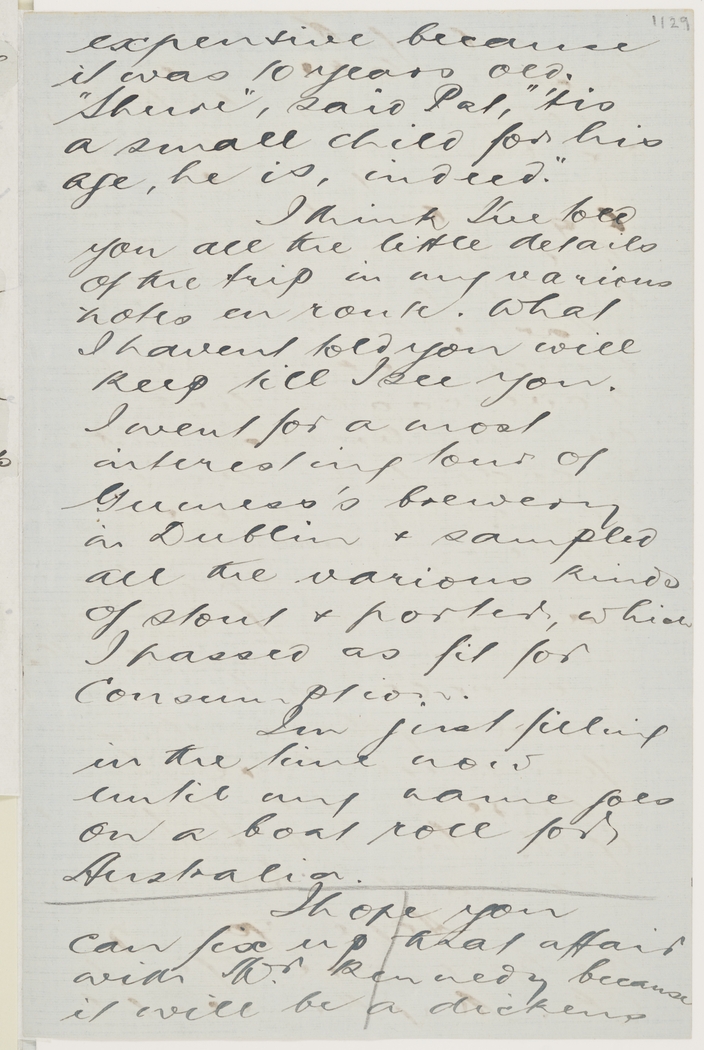 1129
expensive because
it was 10 years old.
"Shure", said Pat, "'tis
a small child for his
age, he is, indeed."
I think I've told
you all the little details
of the trip in my various
notes en route. What
I havent told you will
keep till I see you.
I went for a most
interesting tour of
Guiness's brewery
in Dublin & sampled
all the various kinds
of stout & porter, which
I passed as fit for
Consumption.
Im just filling
in the time now
until my name goes
on a boat roll for
Australia.
I hope you
can fix up that affair
with Mr. Kennedy because
it will be a dickens